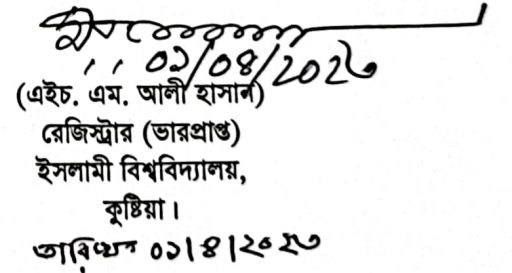 ০১/০৪/২০২৩
(এইচ. এম. আলী হাসান)
রেজিস্ট্রার (ভারপ্রাপ্ত)
ইসলামী বিশ্ববিদ্যালয়,
কুষ্টিয়া।
তারিখঃ ০১/৪/২০২৩